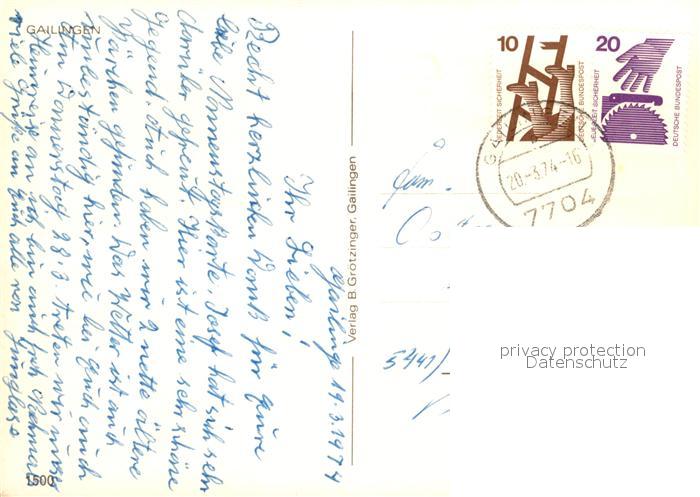 GAILINGEN
Gailinge 19.3.1974
Ihr Lieben!
Recht herzlichen Dank für Eure
liebe Namenstagskarte. Josef hat sich sehr
darüber gefreut. Hier ist eine sehr schöne
Gegend. Auch haben wir 2 nette ältere
Pärchen gefunden. Das Wetter ist auch
hier, wie bei Euch auch
Am Donnerstag 28.3 treten wir unsere
Heimreise an ich bin auch froh
viele Grüße an Euch alle von
1500
Verlag B Grötzinger, Gailingen
10
JEDERZEIT SICHERHEIT
DEUTSCHE BUNDESPOST
20
JEDERZEIT SICHERHEIT
DEUTSCHE BUNDESPOST
20.-3.74-16
7704
Fam.
5441)
privacy protection
Datenschutz